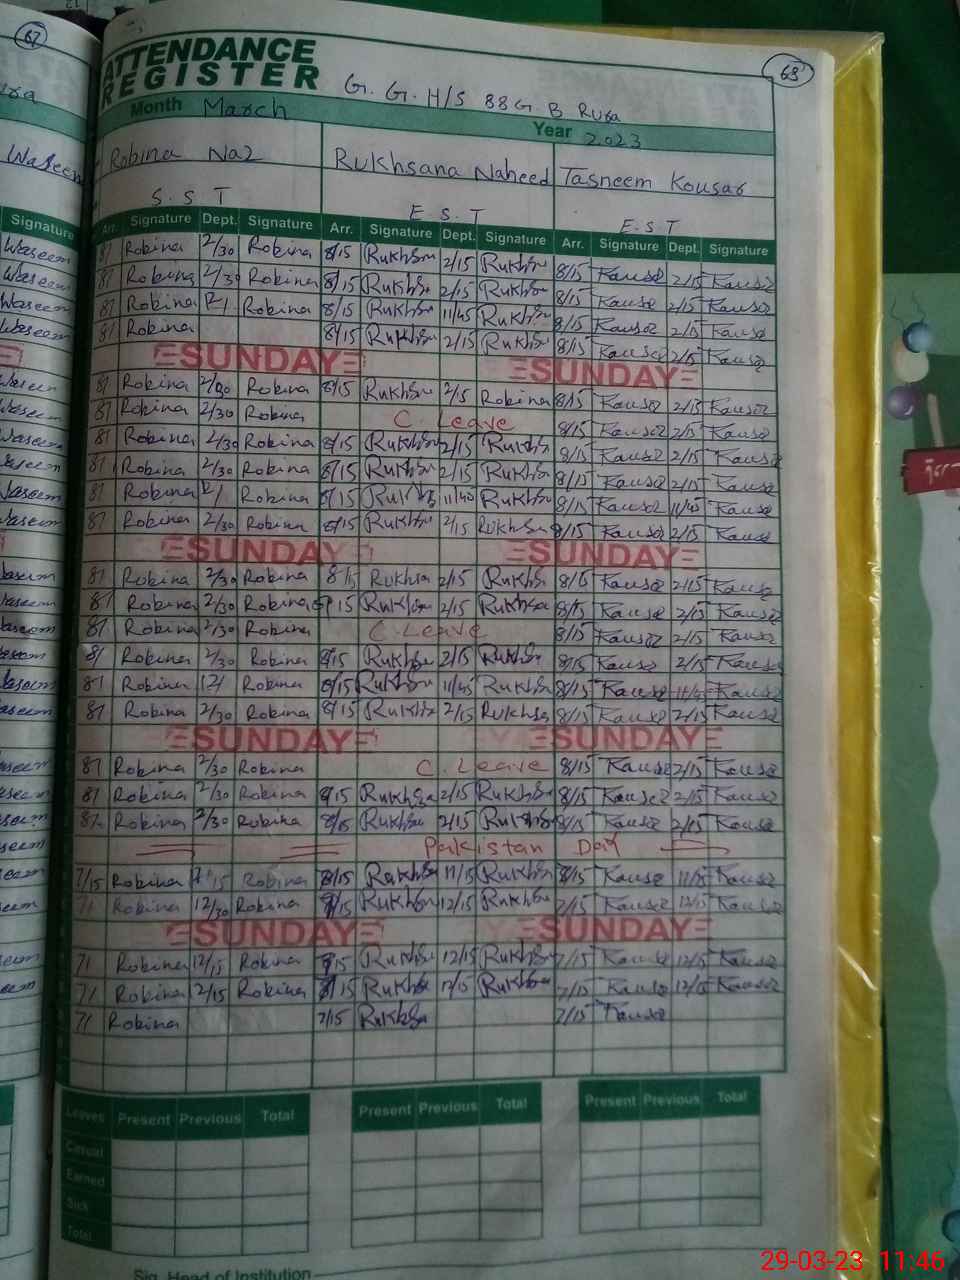 67
68
ATTENDANCE
REGISTER
G. G. H/S 88 G. B Rura
Month March
Year 2023
Waseem
Robina Naz
Rukhsana Naheed
Tasneem Kousar
S. S. T
E. S. T
E. S. T
Signature
Arr. Signature Dept. Signature Arr. Signature Dept. Signature Arr. Signature Dept. Signature
Waseem 8/ Robina 2/30 Robina 8/15 Rukhsa 2/15 Rukhsa 8/15 Kausar 2/15 Kausar
Waseem 8/ Robina 2/30 Robina 8/15 Rukhsa 2/15 Rukhsa 8/15 Kausar 2/15 Kausar
Waseem 8/ Robina 12/ Robina 8/15 Rukhsa 11/45 Rukhsa 8/15 Kausar 2/15 Kausar
Waseem 8/ Robina 8/15 Rukhsa 2/15 Rukhsa 8/15 Kausar 2/15 Kausar
SUNDAY SUNDAY
8/ Robina 2/30 Robina 8/15 Rukhsa 2/15 Robina 8/15 Kausar 2/15 Kausar
8/ Robina 2/30 Robina C. Leave 8/15 Kausar 2/15 Kausar
8/ Robina 2/30 Robina 8/15 Rukhsa 2/15 Rukhsa 8/15 Kausar 2/15 Kausar
8/ Robina 2/30 Robina 8/15 Rukhsa 2/15 Rukhsa 8/15 Kausar 2/15 Kausar
8/ Robina 12/ Robina 8/15 Rukhsa 11/40 Rukhsa 8/15 Kausar 11/45 Kausar
8/ Robina 2/30 Robina 8/15 Rukhsa 2/15 Rukhsa 8/15 Kausar 2/15 Kausar
SUNDAY SUNDAY
8/ Robina 2/30 Robina 8/15 Rukhsa 2/15 Rukhsa 8/15 Kausar 2/15 Kausar
8/ Robina 2/30 Robina 8/15 Rukhsa 2/15 Rukhsa 8/15 Kausar 2/15 Kausar
8/ Robina 2/30 Robina C. Leave 8/15 Kausar 2/15 Kausar
8/ Robina 2/30 Robina 8/15 Rukhsa 2/15 Rukhsa 8/15 Kausar 2/15 Kausar
8/ Robina 12/ Robina 8/15 Rukhsa 11/45 Rukhsa 8/15 Kausar 11/45 Kausar
8/ Robina 2/30 Robina 8/15 Rukhsa 2/15 Rukhsa 8/15 Kausar 2/15 Kausar
SUNDAY SUNDAY
8/ Robina 2/30 Robina C. Leave 8/15 Kausar 2/15 Kausar
8/ Robina 2/30 Robina 8/15 Rukhsa 2/15 Rukhsa 8/15 Kausar 2/15 Kausar
8/ Robina 2/30 Robina 8/15 Rukhsa 2/15 Rukhsa 8/15 Kausar 2/15 Kausar
Pakistan Day
7/15 Robina Robina 8/15 Rukhsa 11/15 Rukhsa 8/15 Kausar Kausar
7/ Robina 12/30 Robina 7/15 Rukhsa 12/15 Rukhsa 7/15 Kausar 12/15 Kausar
SUNDAY SUNDAY
7/ Robina 12/15 Robina 7/15 Rukhsa 12/15 Rukhsa 7/15 Kausar 12/15 Kausar
7/ Robina 2/15 Robina 7/15 Rukhsa 12/15 Rukhsa 7/15 Kausar 12/15 Kausar
7/ Robina 7/15 Rukhsa 7/15 Kausar
Leaves Present Previous Total Present Previous Total Present Previous Total
Casual
Earned
Sick
Total
Sig. Head of Institution
29-03-23 11:46